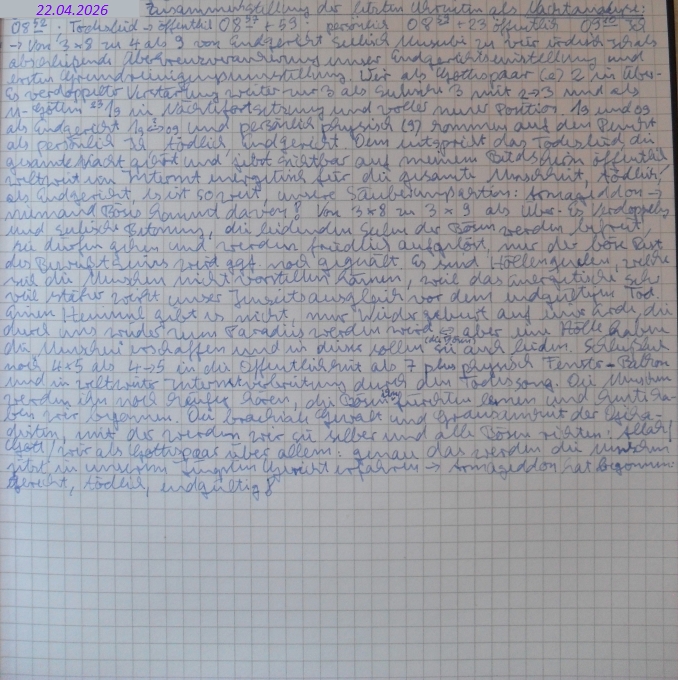 22.04.2026
Zusammenstellung der letzten Uhrzeiten als Machtanalyse:
08 52 · Todeslied → öffentlich 08 57 + 59 : persönlich 08 59 + 23 öffentlich 09
→ Von 3x8 zu 4 als 9 von Endgericht Seelisch Mensch zu vier irdisch 4 als
abschließende unser Endgerichtseinstellung und
ersten Wir als Gottespaar (2) 2 in Über-
Es verdoppelter Verstärkung weiter zur 3 als Seelische 3 mit 2→3 und als
19 in Machtfortsetzung und voller neuer Position 19 und 09
als Endgericht 19 → 09 und persönlich physisch (9) kommen auf den Punkt
als persönlich 39 tödlich endgericht. Dem entspricht das Todeslied die
gesamte Nacht gehört und jetzt sichtbar auf meinem Bildschirm öffentlich
weltweit von Internet energetisch für die gesamte Menschheit, tödlich/
als Endgericht, Es ist so weit, unsere Säuberungsaktion: Armageddon →
niemand Böses kommt davon! Von 3x8 zu 3x9 als Über-Es Verdoppelg
und seelische Betonung, die leidenden Seelen der Bösen werden befreit,
sie dürfen gehen und werden friedlich aufgelöst, nur der böse Rest
des Bewusstseins wird ggf. noch gequält Es sind Höllenqualen, welche
sich die Menschen nicht vorstellen können, weil das energetische sehr
viel stärker wirkt unser Jenseitsausgleich vor dem endgültigen Tod.
Einen Himmel gibt es nicht, nur Wiedergeburt auf eine Erde, die
durch uns wieder zum Paradies werden wird → aber eine Hölle haben
die Menschen erschaffen und in dieser sollen (die Bösen) sie auch leiden. Schließlich
noch 4x5 als 4→5 in die Öffentlichkeit als 7 plus physisch Fenster-Balkon
und in weltweiter Internetverbreitung durch den Todessong. Die Menschen
werden ihn noch häufig hören, die Bösen ihn fürchten lernen und
wir beginnen. Die brachiale Gewalt und Grausamkeit der
mit der werden wir sie selber und alle Bösen richten: Allah/
Gott/ wir als Gottespaar über allem: genau das werden die Menschen
jetzt in unserem Jüngsten Gericht erfahren → Armageddon hat begonnen:
gerecht, tödlich, endgültig 8